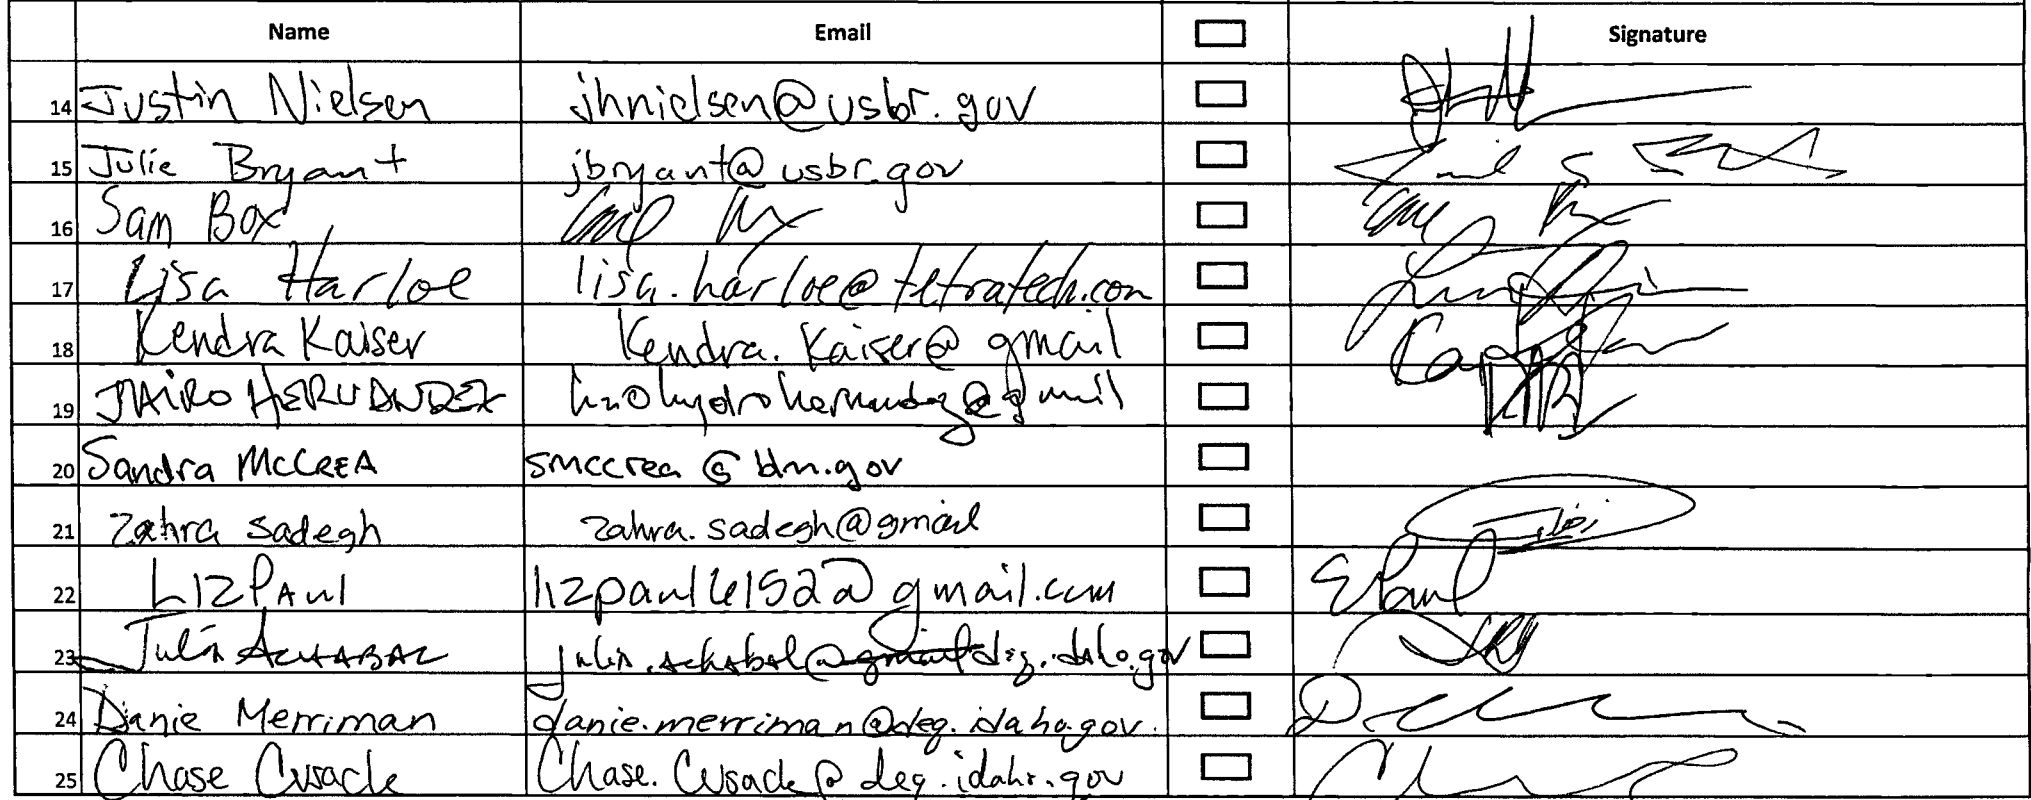 Name Email Signature
14 Justin Nielsen jhnielsen@usbr.gov
15 Julie Bryant jbryant@usbr.gov
16 Sam Box
17 Lisa Harloe lisa.harloe@tetratech.com
18 Kendra Kaiser Kendra.Kaiser@gmail
19 JAIRO HERNANDEZ h2ohydrohernandez@gmail
20 Sandra McCREA smccrea@blm.gov
21 Zahra Sadegh zahra.sadegh@gmail
22 LIZ PAUL lizpaul6152@gmail.com EPaul
23 Julia ACHABAL julia.achabal@deq.idaho.gov
24 Danie Merriman danie.merriman@deq.idaho.gov
25 Chase Cusack Chase.Cusack@deq.idaho.gov